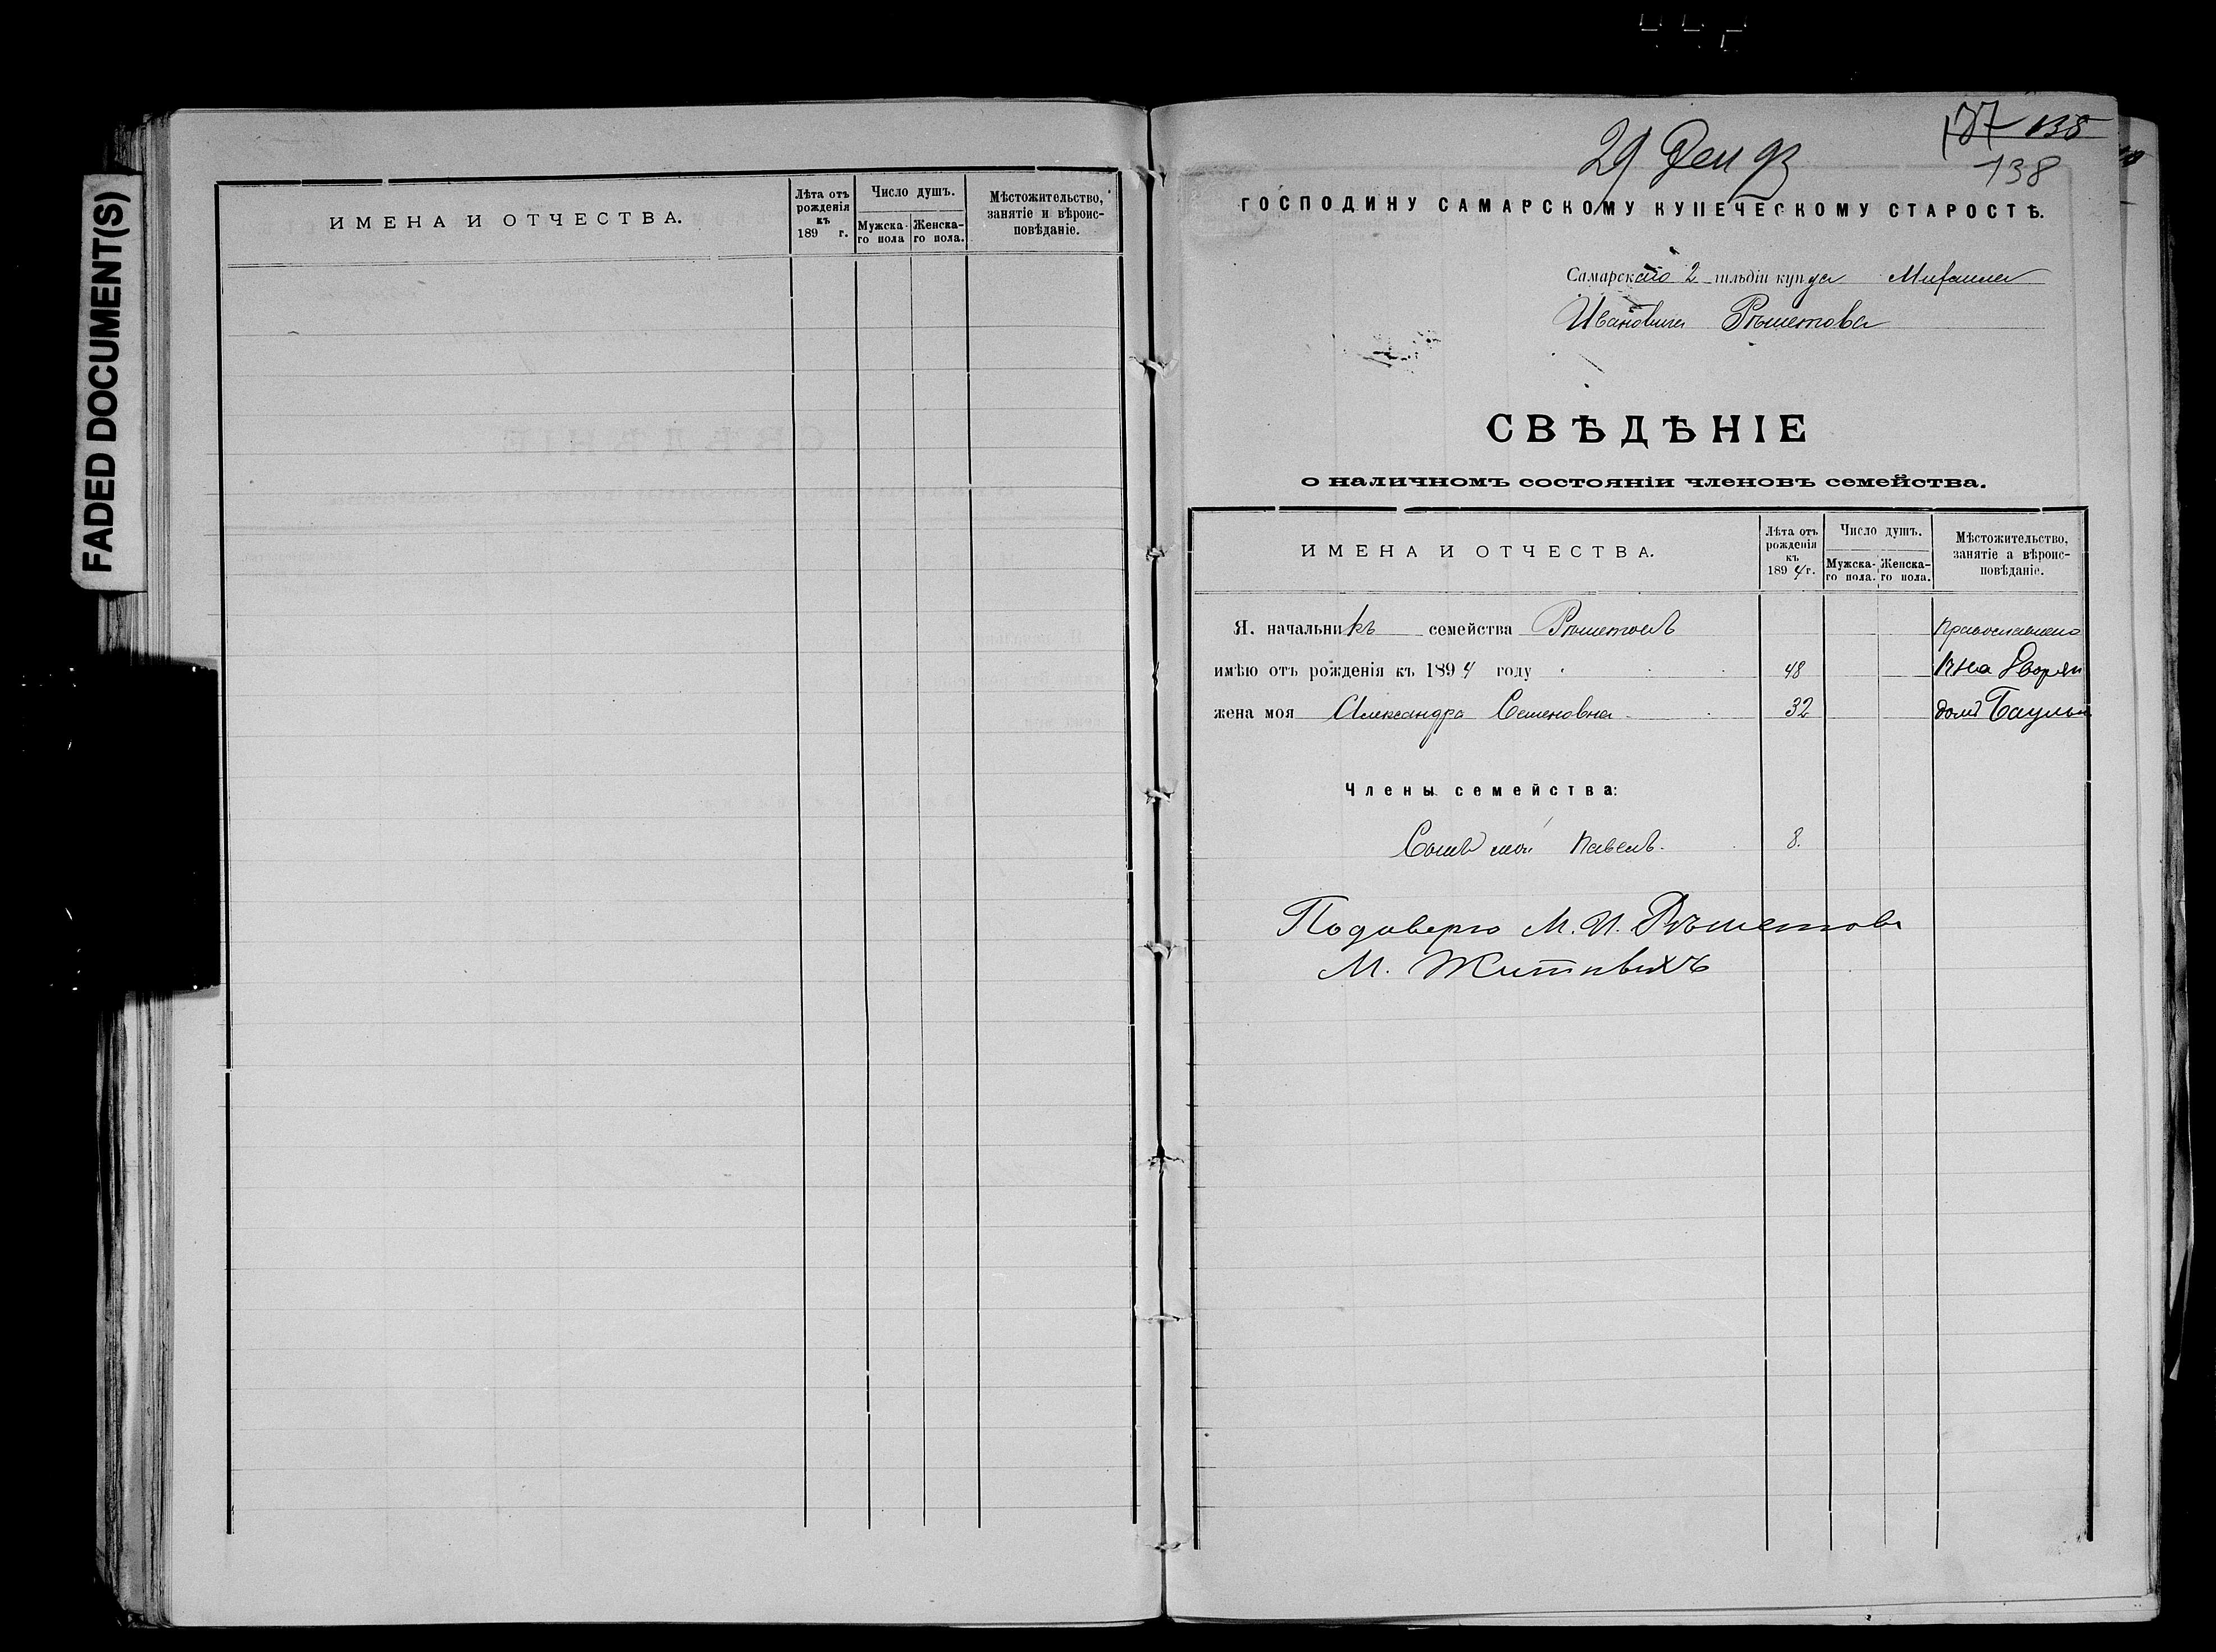 FADED DOCUMENT(S)
ИМЕНА И ОТЧЕСТВА.
Лѣта отъ
рожденія
къ
189 г.
Число душъ.
Мужска-
го пола
Женска-
го пола.
Мѣстожительство,
занятіе и вѣроис-
повѣданіе.
137 138
138
29 Дек 93
ГОСПОДИНУ САМАРСКОМУ КУПЕЧЕСКОМУ СТАРОСТѢ.
Самарскаго 2 гильдіи купца Михаила
Ивановича Рѣшетова
СВѢДѢНІЕ
о наличномъ состояніи членовъ семейства.
ИМЕНА И ОТЧЕСТВА.
Лѣта отъ
рожденія
къ
1894 г.
Число душъ.
Мужска-
го пола.
Женска-
го пола.
Мѣстожительство,
занятіе а вѣроис-
повѣданіе.
Я. начальникъ семейства Рѣшетовъ
имѣю отъ рожденія къ 1894 году 48 на Дворян
жена моя Александра Семеновна 32 домъ
Члены семейства:
Сынъ мой Павелъ. 8.
М. И. Рѣшетова
М.